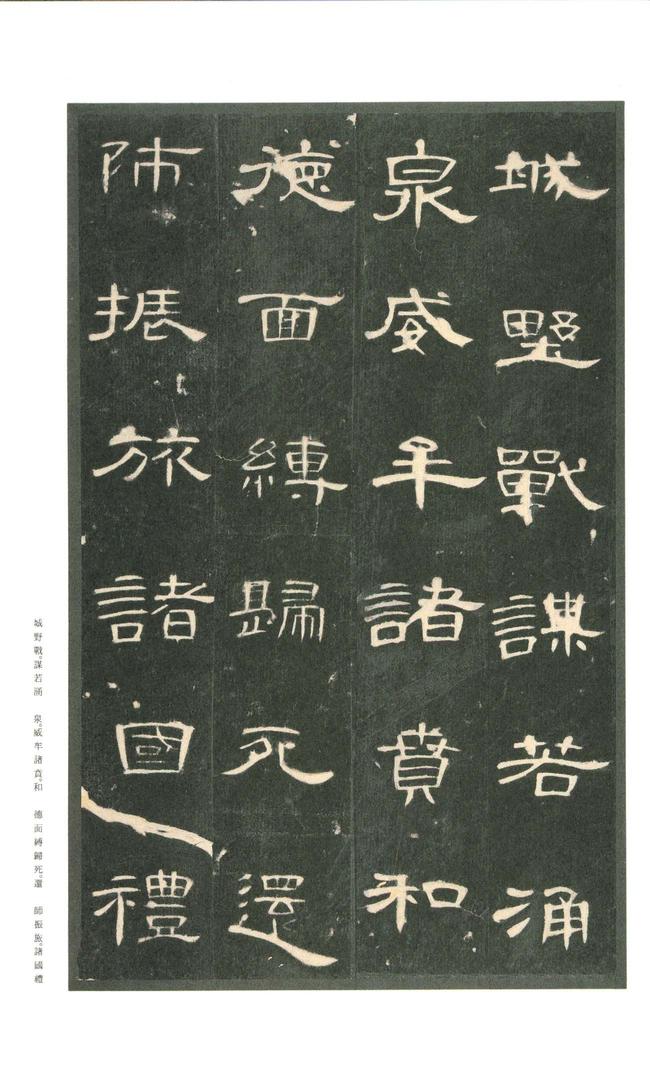 城野戰謀若涌
泉威牟諸賁和
德面縛歸死還
師振旅諸國禮
城野戰。謀若涌　泉。威牟諸賁。和　德面縛歸死。還　師振旅。諸國禮